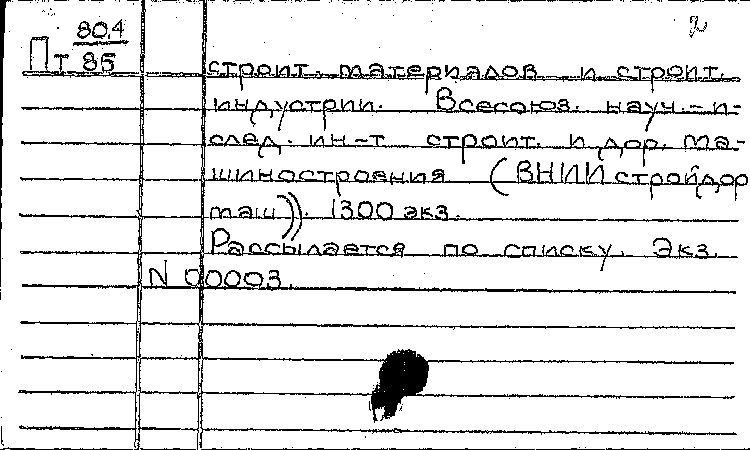 2
80.4
Пт 85
строит. материалов и строит.
индустрии. Всесоюз. науч.-и-
след. ин-т строит. и дор. ма-
шиностроения (ВНИИстройдор
маш)). 1300 экз.
Рассылается по списку. Экз.
N 00003.